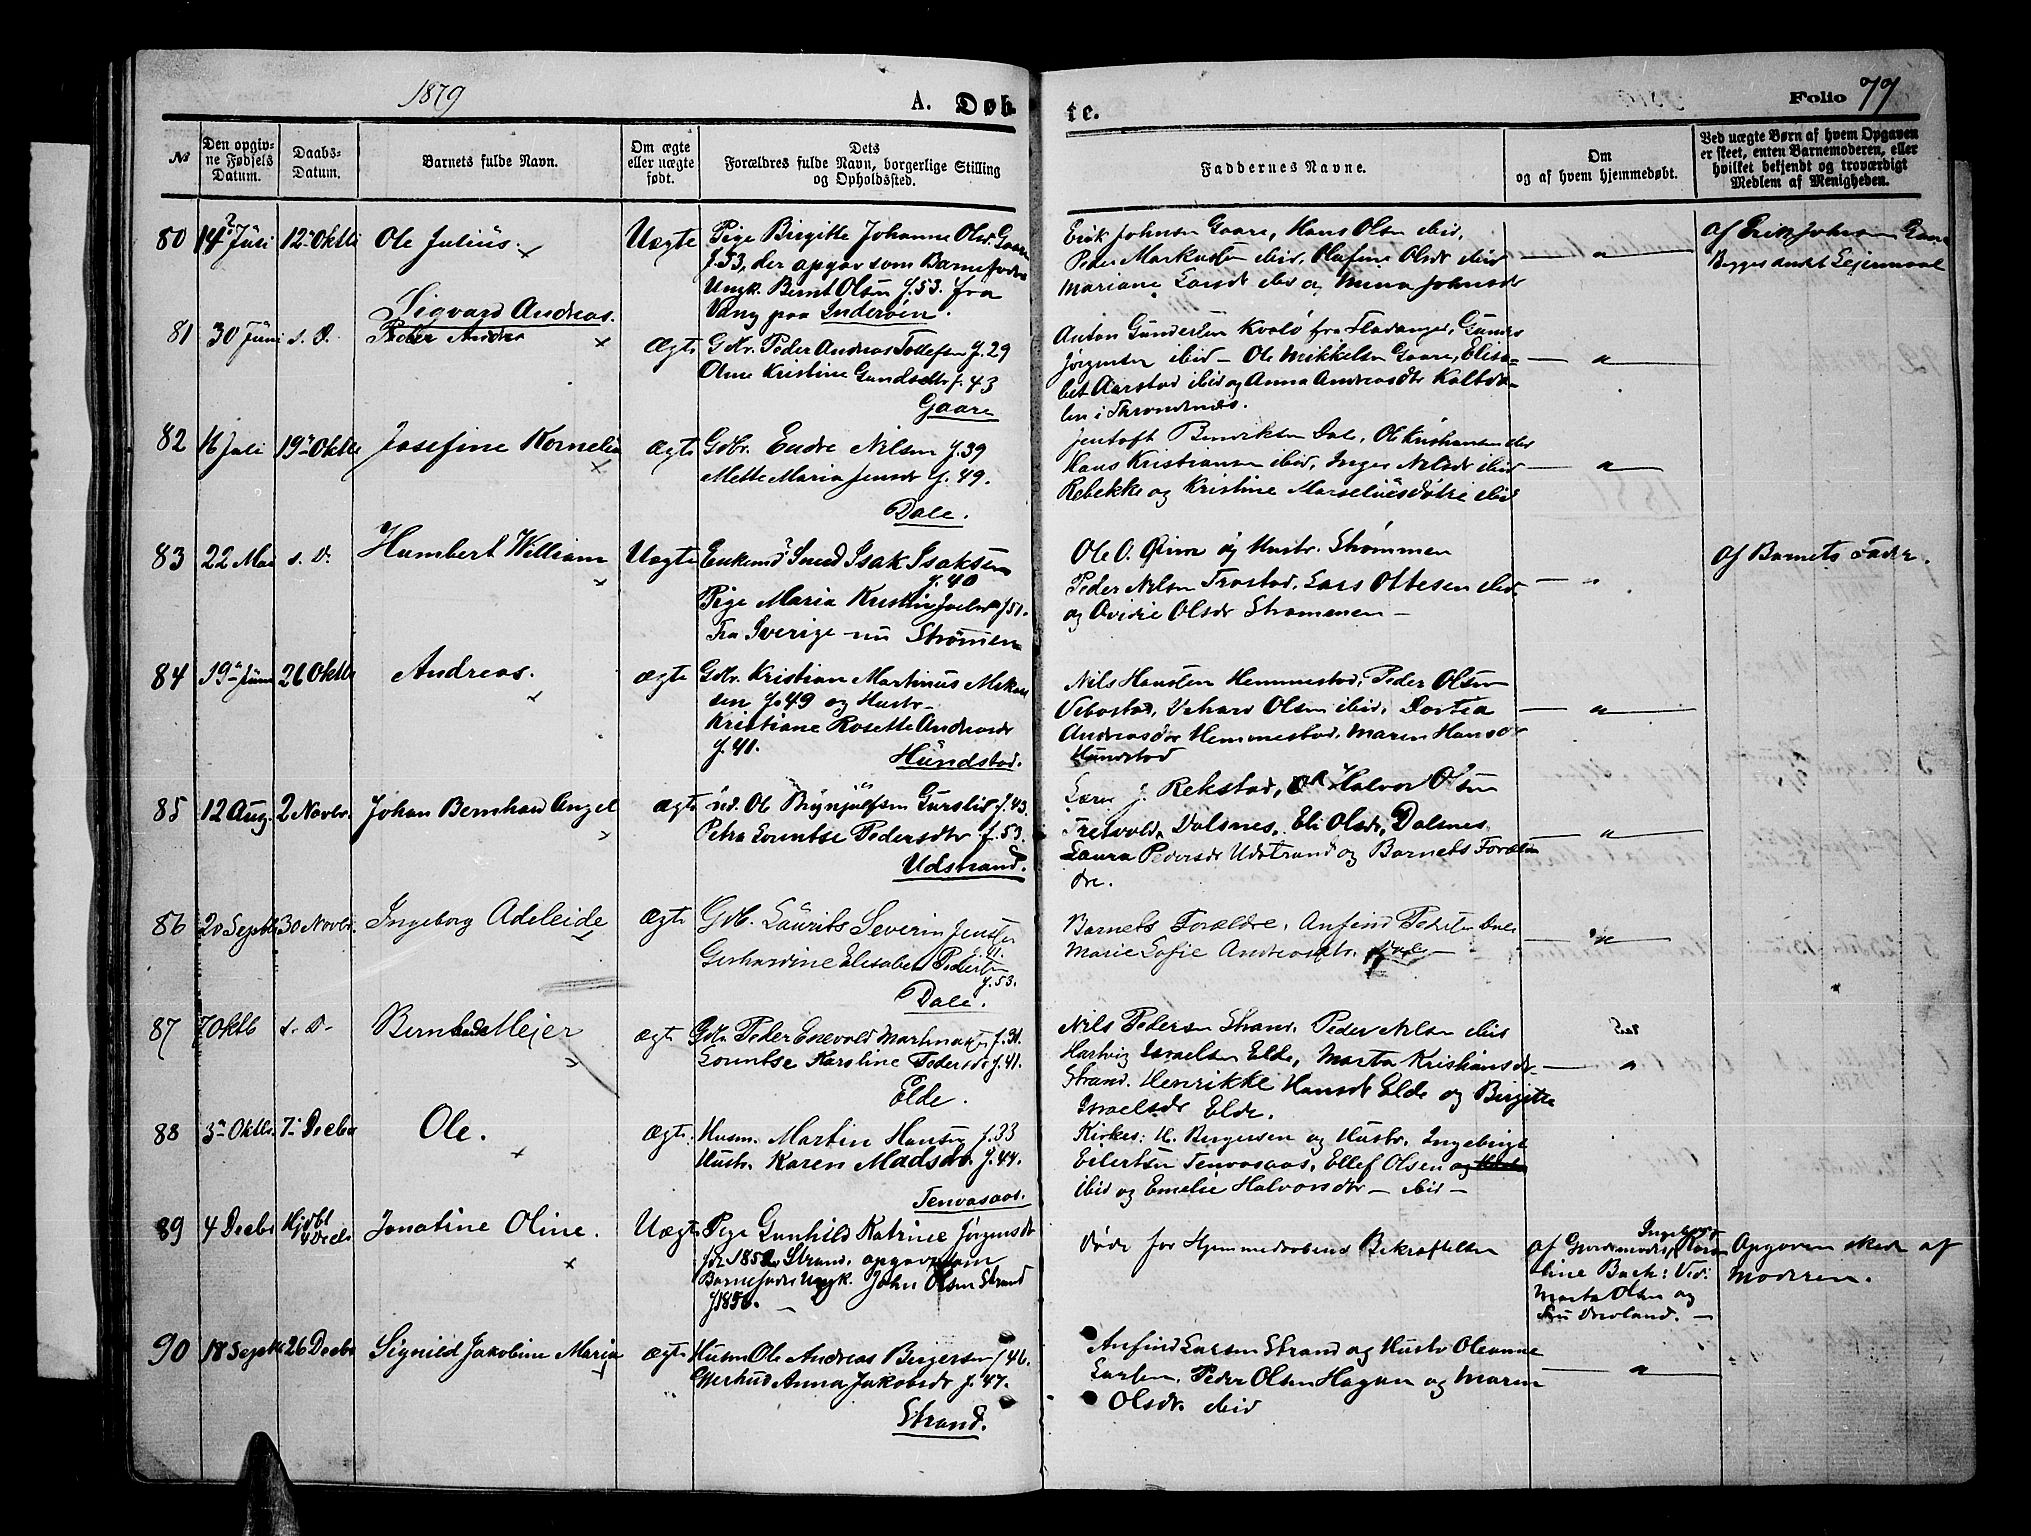 1879
A. Døb
te.
Folio 77
№
Den opgiv-
ne Fødsels
Datum.
Daabs-
Datum.
Barnets fulde Navn.
Om ægte
eller uægte
født.
Dets
Forældres fulde Navn, borgerlige Stilling
og Opholdssted.
Faddernes Navne.
Om
og af hvem hjemmedøbt.
Ved uægte Børn af hvem Opgaven
er skeet, enten Barnemoderen, eller
hvilket bekjendt og troværdigt
Medlem af Menigheden.
80 14 Juli 12 Oktb Ole Julius. Uægte
Pige Birgitte Johanne Olsdr Gaare
f. 53, der opgav som Barnefader
Ungk. Bernt Olsen f. 53. fra
Vang paa Inderøen.
Erik Johnsen Gaare, Hans Olsen ibid,
Peder Markussen ibid, Olufine Olsdr ibid
Mariane Larsdr ibid og Mina Johnsdr
af Erik Johnsen Gaare
Begges andet Lejermaal
81 30 Juni s. D. Sigvard Andreas.
Peder Andreas
ægte Gdbr. Peder Andreas Tollefsen f. 29
Oline Kristine Gundersdtr f. 43
Gaare
Anton Gundersen Kvalø fra Fladanger, Gunder
Jørgensen ibid – Ole Mikkelsen Gaare, Elisa-
bet Aarstad ibid og Anna Andreasdtr Kaltda-
len i Throndenæs.
82 16 Juli 19 Oktb Josefine Kornelia ægte
Gdbr. Endre Nilsen f. 39
Mette Maria Jensdr f. 49.
Dale.
Jentoft Benriksen Dale, Ole Kristiansen ibid
Hans Kristiansen ibid, Inger Nilsdr ibid
Rebekke og Kristine Marseliusdøtre ibid
83 22 Mai s. D. Humbert William Uægte
Enkemd Smed Isak Isaksen
f. 40
Pige Maria Kristine Joelsdr f. 51.
Fra Sverige nu Strømmen
Ole O. og Hustr. Strømmen
Peder Nilsen Trostad, Lars Ottesen ibid,
og Ovidie Olsdr Strømmen –
af Barnets Fader.
84 19 Juni 26 Oktb Andreas. ægte
Gdbr. Kristian Martinus Mikal
sen f. 49 og Hustr
Kristiane Rosette Andreasdr
f. 41. Hundstad.
Nils Hansen Hemmestad, Peder Olsen
Vebostad, Vehard Olsen ibid, Dortea
Andreasdtr Hemmestad, Maren Hansdr
Hundstad
85 12 Aug. 2 Novbr. Johan Bernhard Angel ægte
Ole Brynjulfsen Gurslid f. 43.
Petra Lorentse Pedersdtr f. 53.
Udstrand.
Lærer J. Rekstad, Halvor Olsen
Tretvold, Dalsnes, Eli Olsdr, Dalsnes,
Laura Pedersdr Udstrand og Barnets Foræl
dre.
86 20 Septb 30 Novbr. Ingeborg Adeleide ægte
Gdb. Laurits Severin Jensen
Gerhardine Elisabet Pedersen
f. 53.
Dale.
Barnets Forældre, Anfind Pedersen Dale
Marie Sofie Andreasdtr. Dale –
87 7 Oktb s. D. Bernhard Mejer ægte
Gdbr Peder Enevold Martinussen f. 31.
Lorentse Karoline Pedersdr f. 41.
Elde.
Nils Pedersen Strand. Peder Nilsen ibid
Hartvig Israelsen Elde, Marta Kristiansdr
Strand. Henrikke Hansdr Elde og Birgitte
Israelsdr Elde.
88 3 Oktb. 7 Decbr Ole. ægte.
Husm. Martin Hansen f. 33
Hustr. Karen Madsdtr. f. 44.
Tenvasaas.
Kirkes: H. Bergersen og Hustr. Ingeborg
Eilertsen Tenvasaas, Ellef Olsen
ibid og Emelie Halvorsdtr – ibid –
89 4 Decbr Hjdbt
4 Decbr Jonatine Oline. Uægte
Pige Gunhild Katrine Jørgensdr
fdt 1852 Strand, opgav som
Barnefader Ungk. John Olsen Strand
f. 1856. –
Døde før Hjemmedaabens Bekræftelse
af Gjordemoder Ingeborg Karo
line Bach: Vid:
Marta Olsen og
Fru Devland. –
Opgaven skede af
Moderen.
90 18 Septb 26 Decbr Signild Jakobine Maria ægte
Husm Ole Andreas Bergersen f. 46.
Gjertrud Anna Jakobsdr f. 47.
Strand.
Anfind Larsen Strand og Hustr Oleanne
Larsen, Peder Olsen Hagan og Maren
Olsdr. ibid